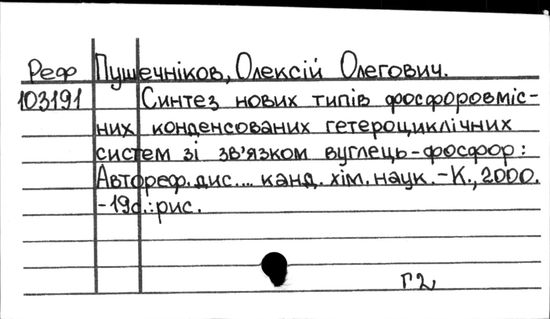 Реф Пушечніков, Олексій Олегович.
103191 Синтез нових типів фосфоровміс-
них конденсованих гетероциклічних
систем зі зв'язком вуглець-фосфор:
Автореф. дис.... канд. хім. наук. -К., 2000.
-19с.: рис.
Г2